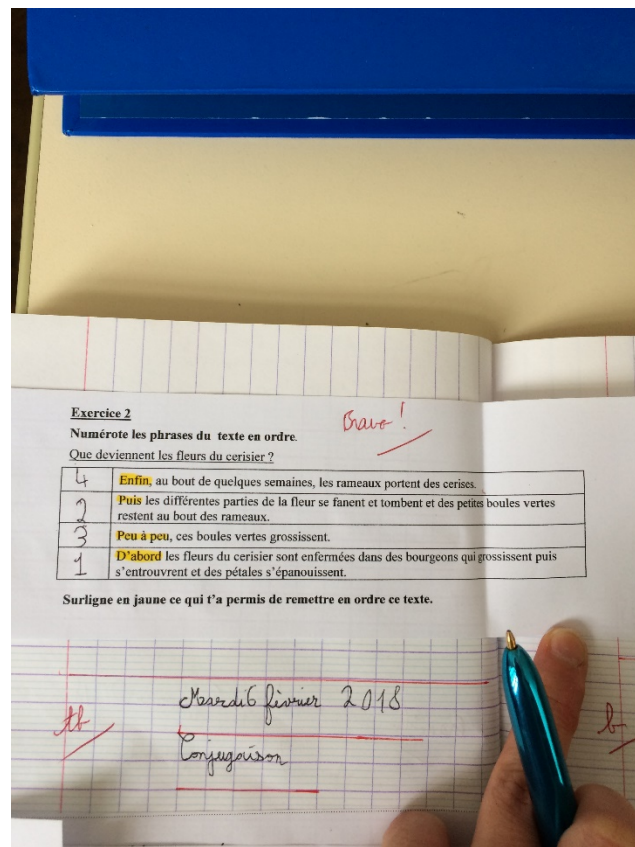 Exercice 2
Bravo !
Numérote les phrases du texte en ordre.
Que deviennent les fleurs du cerisier ?
4 Enfin, au bout de quelques semaines, les rameaux portent des cerises.
2 Puis les différentes parties de la fleur se fanent et tombent et des petites boules vertes
restent au bout des rameaux.
3 Peu à peu, ces boules vertes grossissent.
1 D'abord les fleurs du cerisier sont enfermées dans des bourgeons qui grossissent puis
s'entrouvrent et des pétales s'épanouissent.
Surligne en jaune ce qui t'a permis de remettre en ordre ce texte.
Mardi 6 février 2018
tb
b
Conjugaison